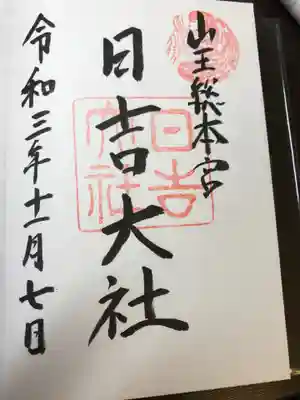 山王総本宮
日吉大社
日吉
大社
令和三年十一月七日